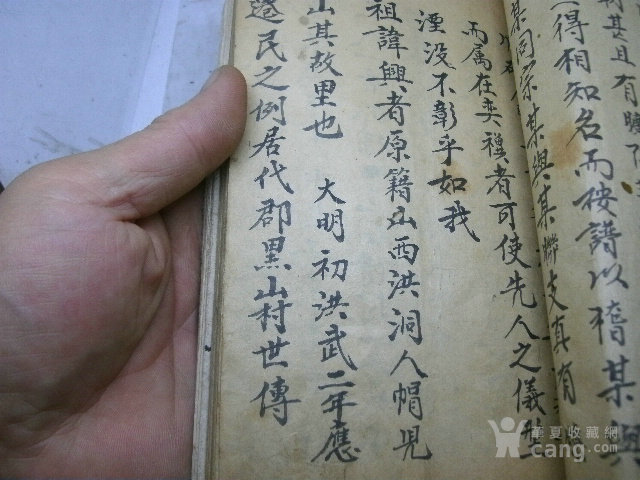 其且有
得相知名而按譜以稽某與
某同宗某與某聯支真有
而属在奕禩者可使先人之儀型
湮没不彰乎如我
祖諱興者原籍山西洪洞人帽児
山其故里也 大明初洪武二年應
遷民之例居代郡黒山村世傳
華夏收藏網
cang.com